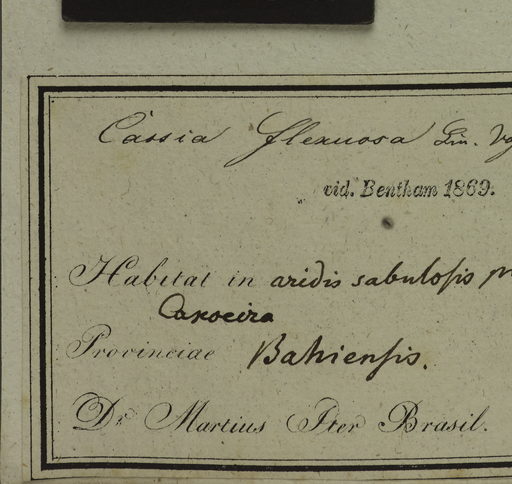 Cassia flexuosa Lin.
vid. Bentham 1869.
Habitat in aridis sabulosis
Caxoeira
Provinciae Bahiensis.
Dr Martius Iter Brasil.